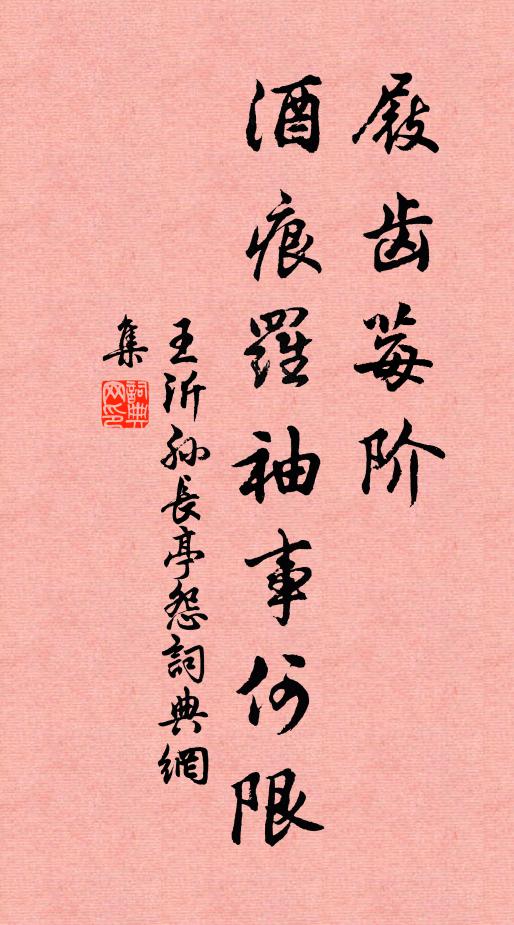 屐齿莓阶
酒痕羅袖事何限
王沂孙長亭怨詞典網
集
詞典
网印